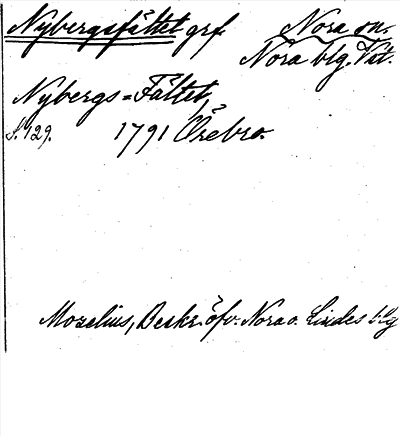 Nybergsfältet grf. Nora sn.
Nora blg. Vstm.
Nybergs=Fältet,
S. 129. 1791 Örebro.
Mozelius, Beskr. öfv. Nora o. Lindes blg